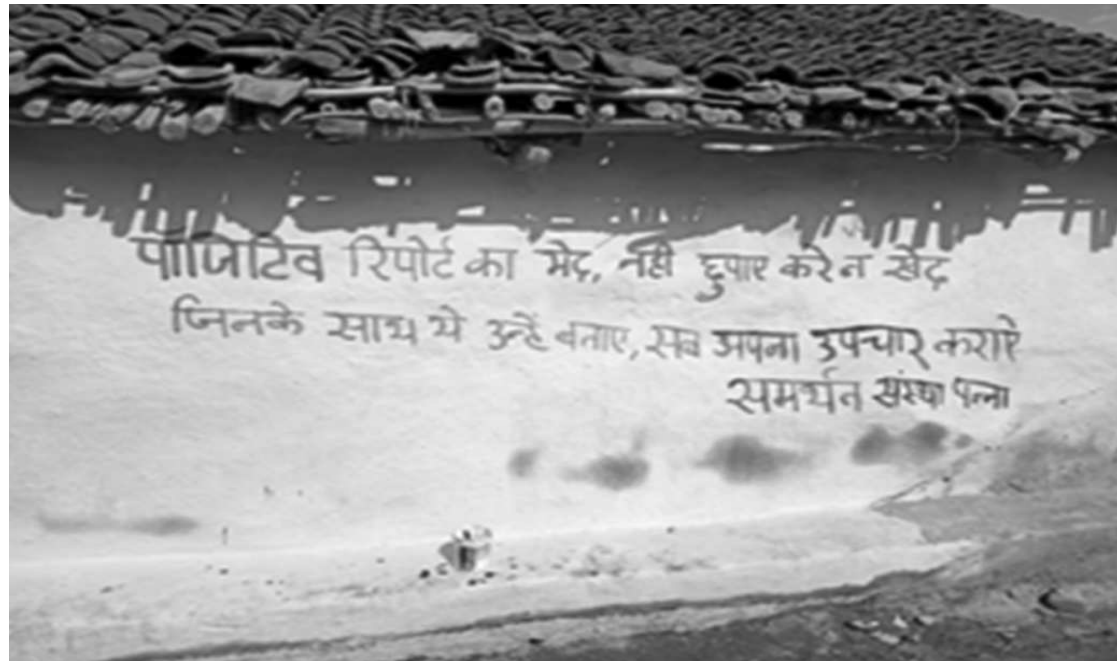 पॉजिटिव रिपोर्ट का भेद, नही छुपाए करे न खेद
जिनके साथ थे उन्हें बताए, सब अपना उपचार कराऐ
समर्थन संस्था पन्ना